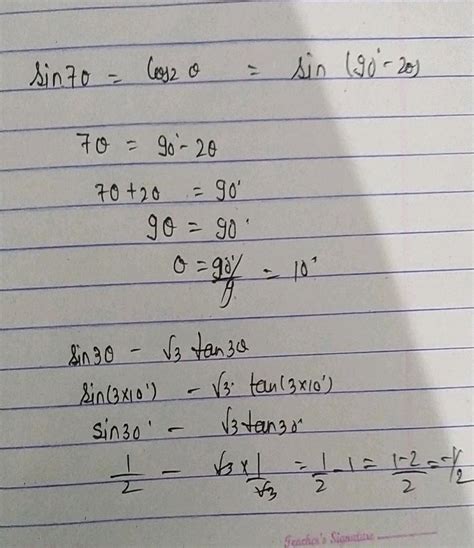 sin7θ = cos2θ = sin (90°-2θ)
7θ = 90°-2θ
7θ+2θ = 90°
9θ = 90°
θ = 90°/9 = 10°
sin3θ - √3 tan3θ
sin(3×10°) - √3 tan(3×10°)
sin30° - √3tan30°
1/2 - √3 × 1/√3 = 1/2 - 1 = 1-2/2 = -1/2
Teacher's Signature